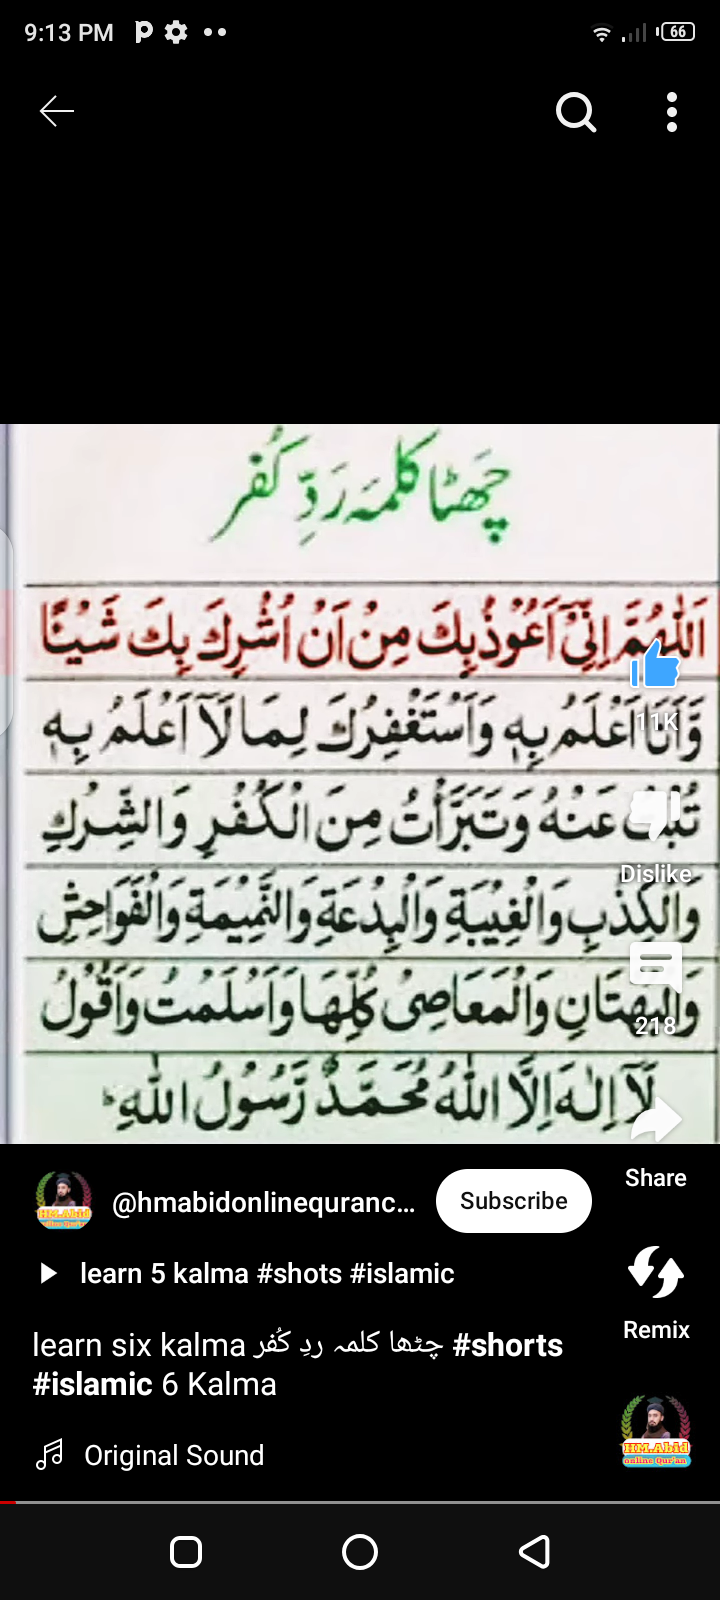 9:13 PM
66
چھٹا کلمہ رَدِّ کُفر
اَللّٰهُمَّ اِنِّیْٓ اَعُوْذُ بِكَ مِنْ اَنْ اُشْرِكَ بِكَ شَیْئًا
وَّاَنَا اَعْلَمُ بِهٖ وَاَسْتَغْفِرُكَ لِمَا لَآ اَعْلَمُ بِهٖ
تُبْتُ عَنْهُ وَتَبَرَّأْتُ مِنَ الْكُفْرِ وَالشِّرْكِ
وَالْكِذْبِ وَالْغِیْبَةِ وَالْبِدْعَةِ وَالنَّمِیْمَةِ وَالْفَوَاحِشِ
وَالْبُهْتَانِ وَالْمَعَاصِیْ كُلِّهَا وَاَسْلَمْتُ وَاَقُوْلُ
لَآ اِلٰهَ اِلَّا اللّٰهُ مُحَمَّدٌ رَّسُوْلُ اللّٰهِ ؕ
11K
Dislike
218
Share
@hmabidonlinequranc...
Subscribe
learn 5 kalma #shots #islamic
Remix
learn six kalma چٹھا کلمہ ردِ کُفر #shorts
#islamic 6 Kalma
HM.Abid
online Qur'an
Original Sound